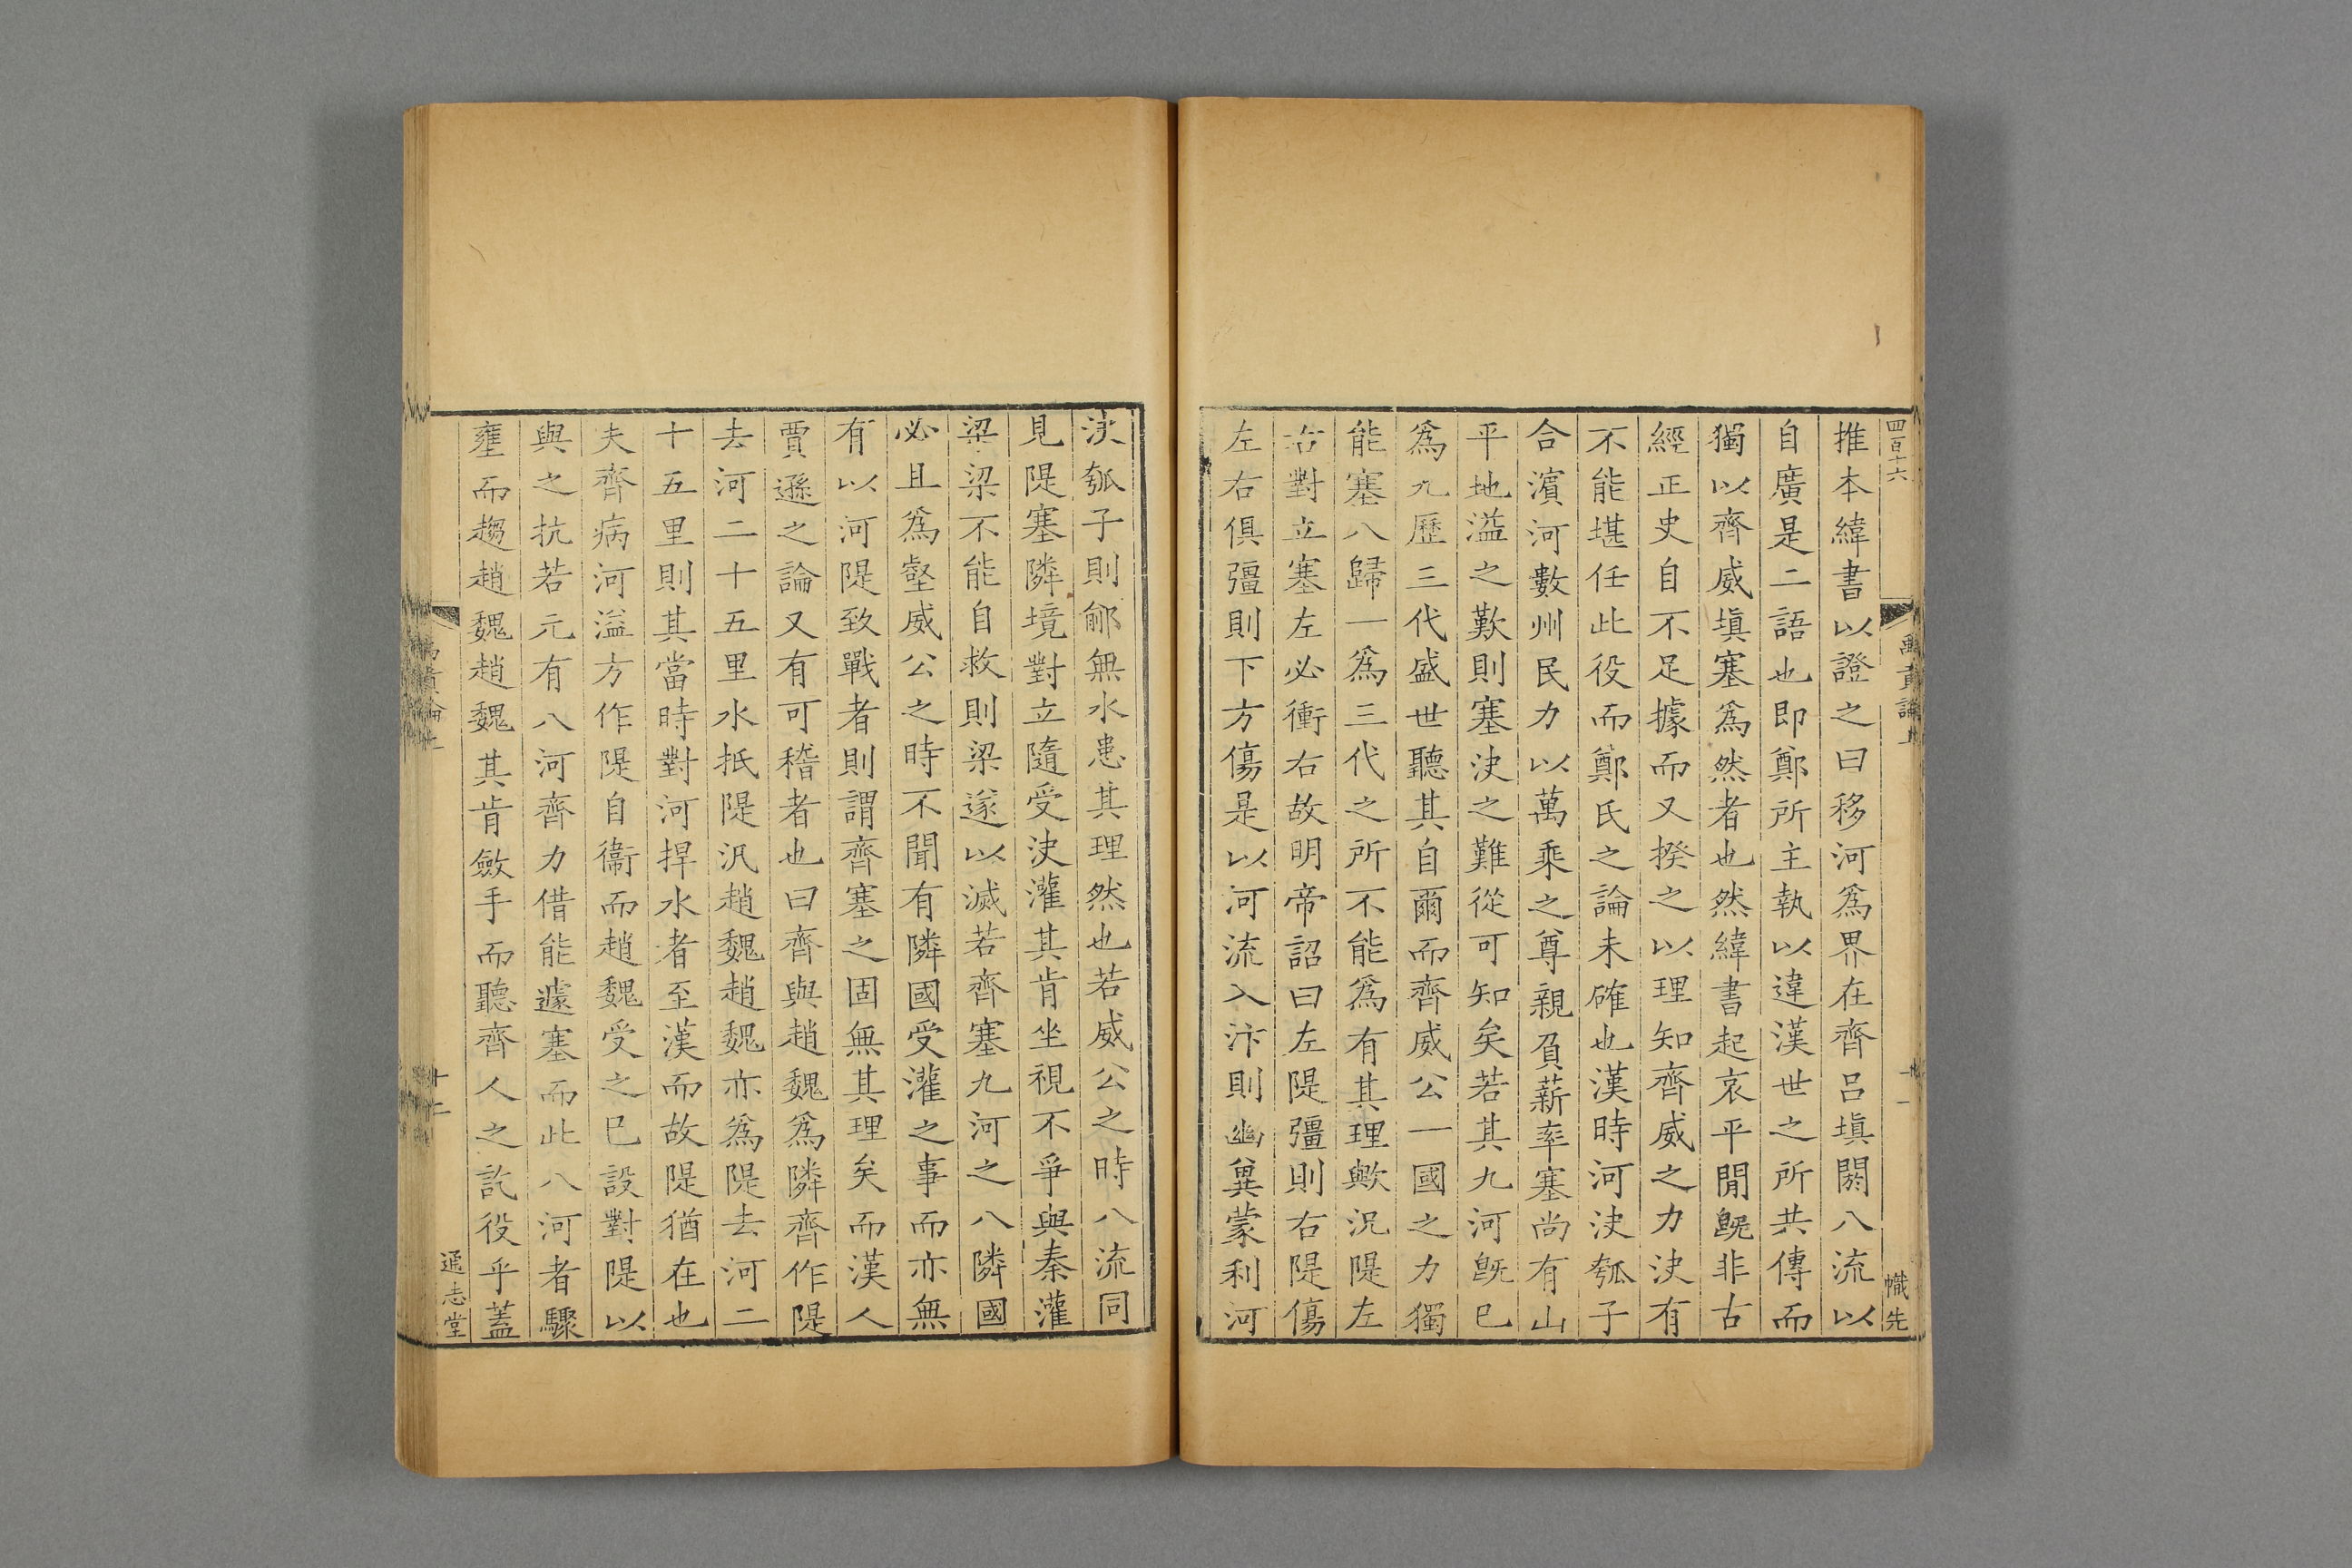 四百十六
禹貢論上
幟先
推本緯書以證之曰移河爲界在齊呂塡閼八流以
自廣是二語也即鄭所主執以違漢世之所共傳而
獨以齊威塡塞爲然者也然緯書起哀平閒旣非古
經正史自不足據而又揆之以理知齊威之力決有
不能堪任此役而鄭氏之論未確也漢時河決瓠子
合濵河數州民力以萬乘之尊親負薪率塞尚有山
平地溢之歎則塞決之難從可知矣若其九河旣已
爲九歷三代盛世聽其自爾而齊威公一國之力獨
能塞八歸一爲三代之所不能爲有其理歟況隄左
右對立塞左必衝右故明帝詔曰左隄彊則右隄傷
左右俱彊則下方傷是以河流入汴則幽冀蒙利河
決瓠子則鄃無水患其理然也若威公之時八流同
見隄塞隣境對立隨受決灌其肯坐視不爭與秦灌
梁梁不能自救則梁遂以滅若齊塞九河之八隣國
必且爲壑威公之時不聞有隣國受灌之事而亦無
有以河隄致戰者則謂齊塞之固無其理矣而漢人
賈遜之論又有可稽者也曰齊與趙魏爲隣齊作隄
去河二十五里水抵隄汎趙魏趙魏亦爲隄去河二
十五里則其當時對河捍水者至漢而故隄猶在也
夫齊病河溢方作隄自衞而趙魏受之已設對隄以
與之抗若元有八河齊力借能遽塞而此八河者驟
壅而趨趙魏趙魏其肯斂手而聽齊人之託役乎蓋
禹貢論上
十二
通志堂